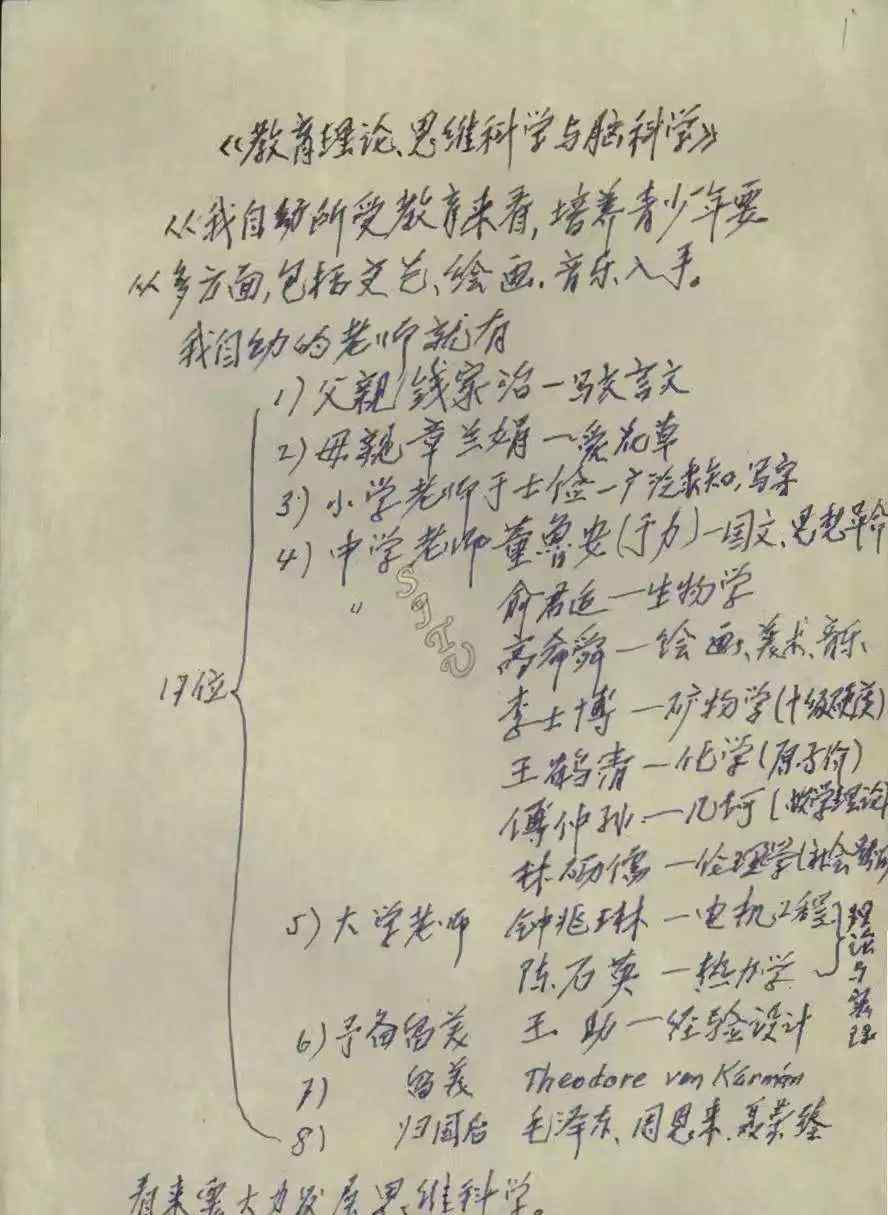 1
《教育理论、思维科学与脑科学》
从我自幼所受教育来看,培养青少年要
从多方面,包括文艺、绘画、音乐入手。
我自幼的老师就有
1) 父亲 钱家治—写文言文
2) 母亲 章兰娟—爱花草
3) 小学老师于士俭—广泛求知,写字
4) 中学老师 董鲁安(于力)—国文、思想革命
" 俞君适—生物学
高希舜—绘画、美术、音乐
李士博—矿物学(十级硬度)
王鹤清—化学(原子价)
傅仲孙—几何(数学理论
林砺儒—伦理学(社会
5) 大学老师 钟兆琳—电机工程
陈石英—热力学
理论与实际
6) 予备留美 王助—经验设计
7) 留美 Theodore von Kármán
8) 归国后 毛泽东、周恩来、聂荣臻
17位
SJTU
看来要大力发展思维科学。